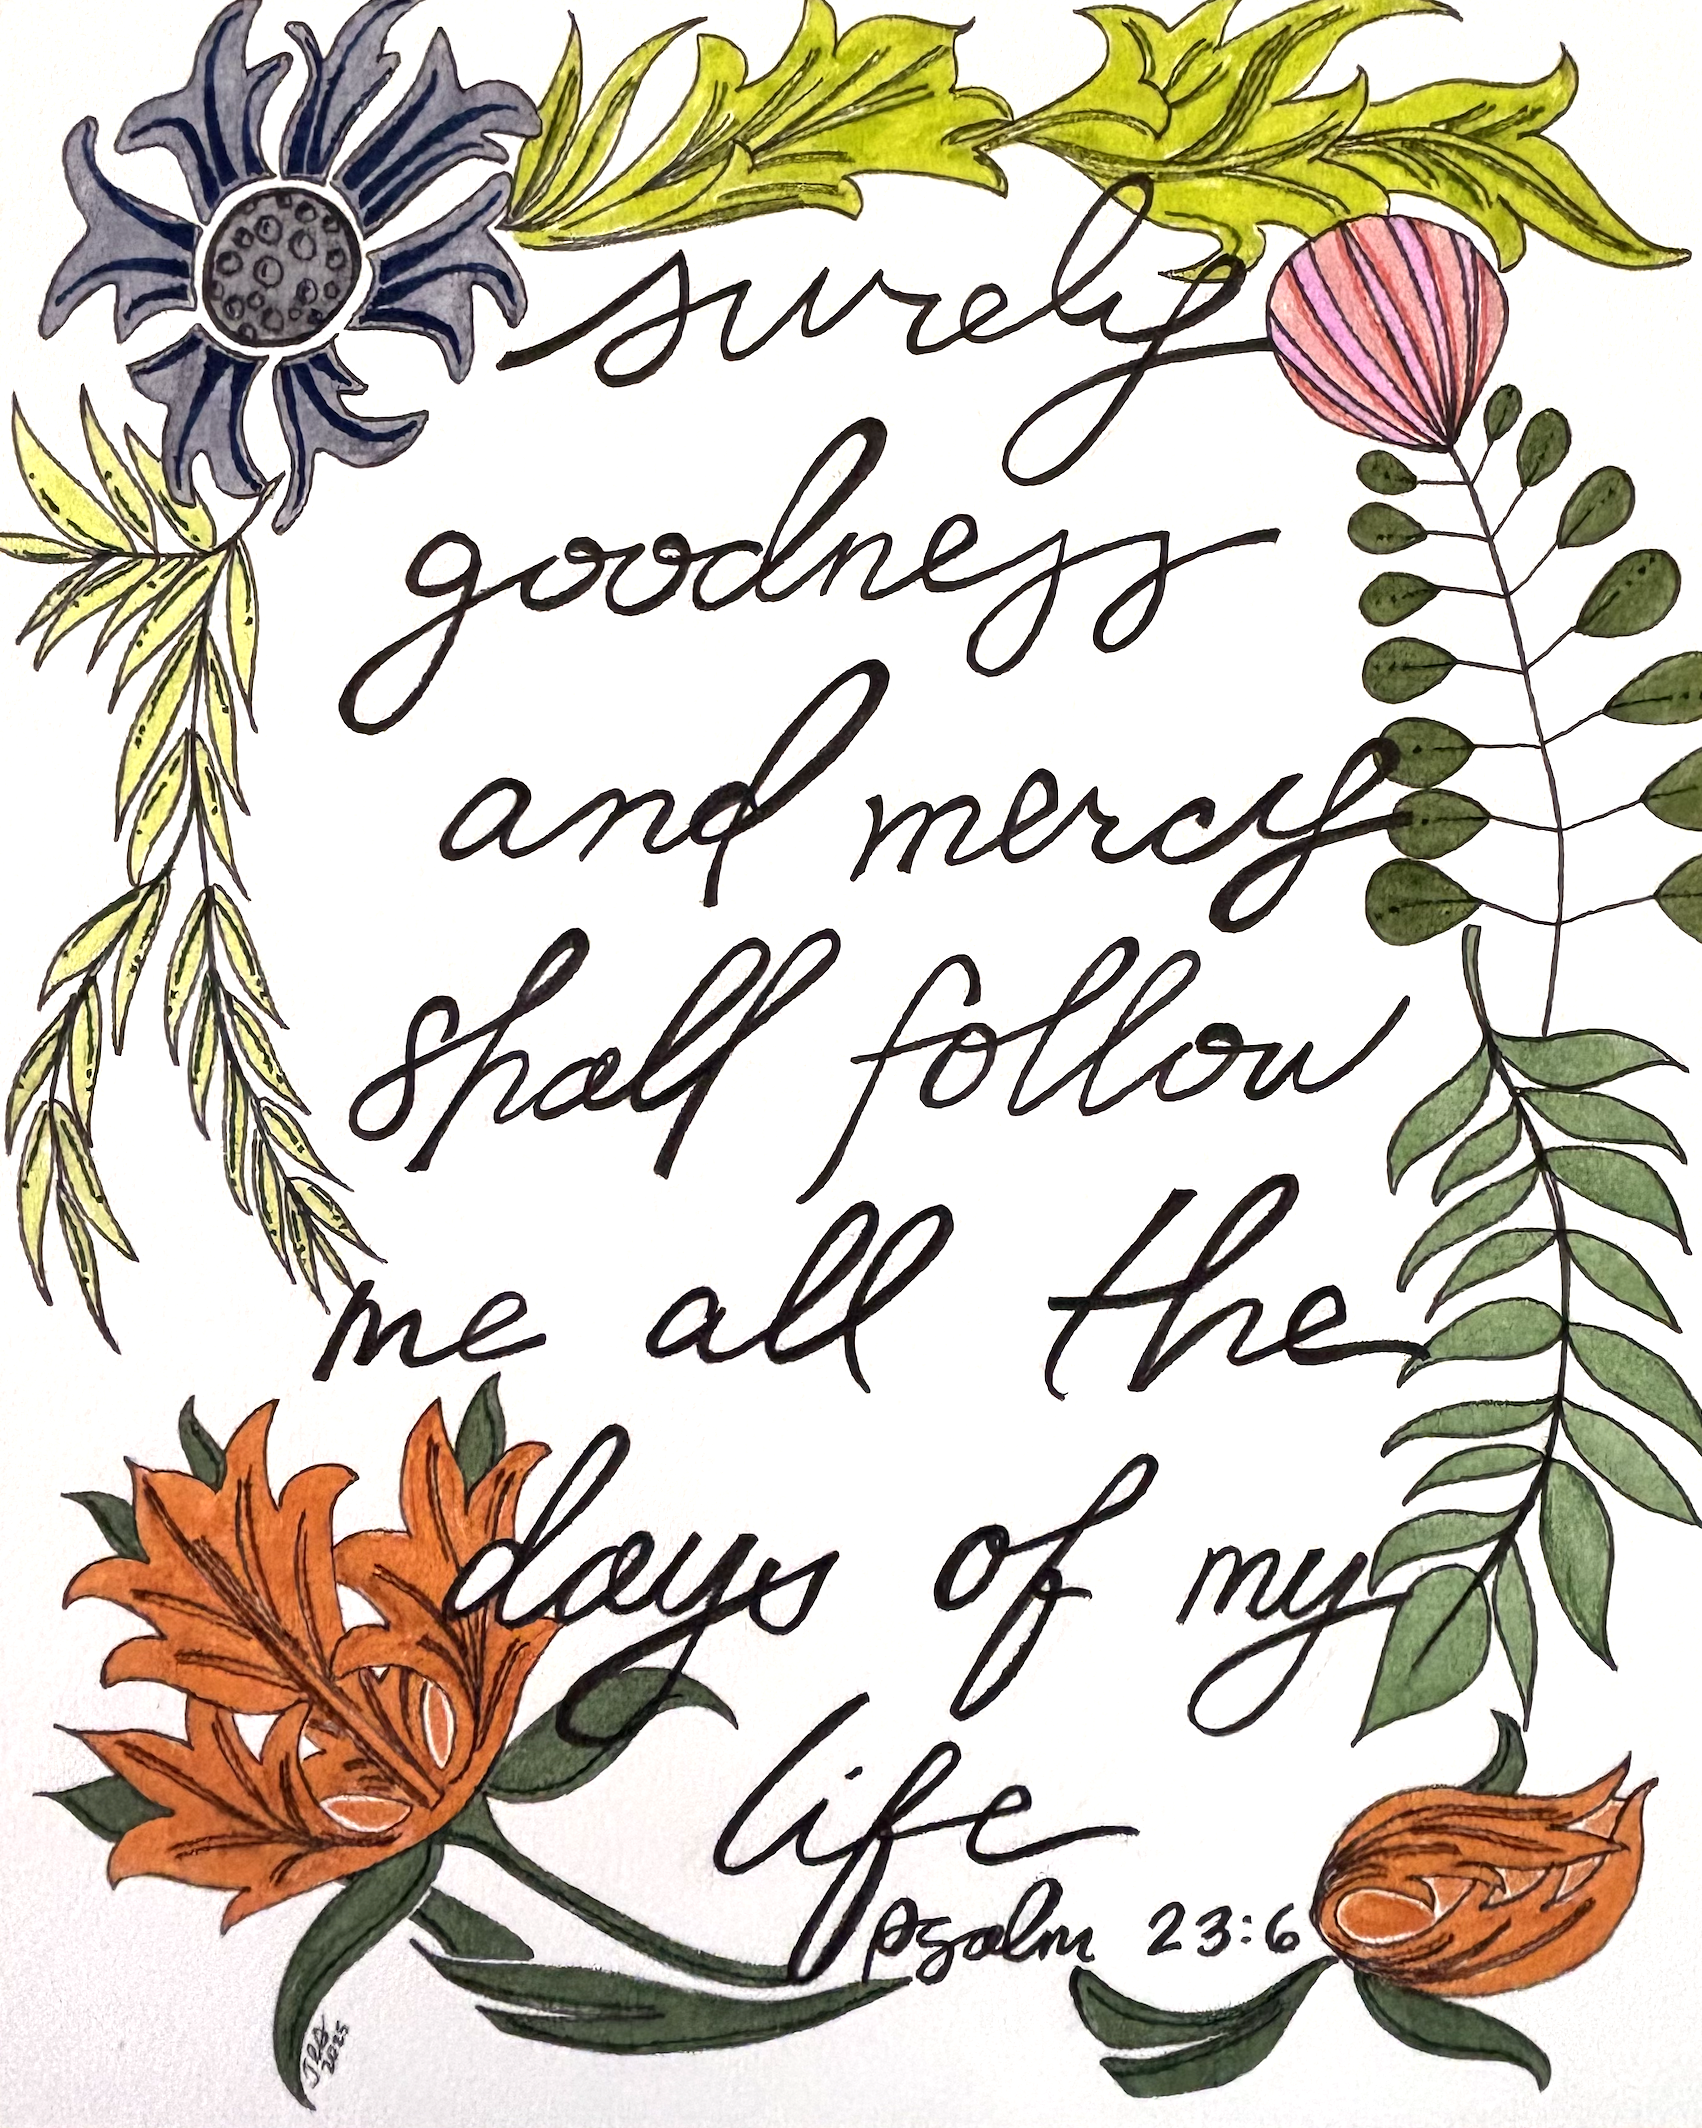 surely
goodness
and mercy
shall follow
me all the
days of my
life
psalm 23:6
2025